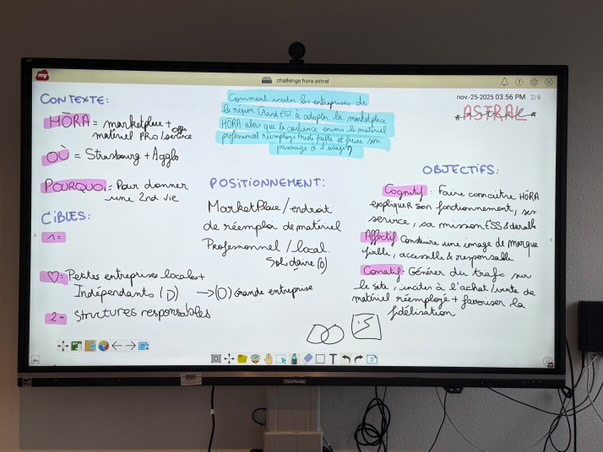 my
challenge hora astral
nov.-25-2025 03:56 PM 2/4
CONTEXTE:
HORA = marketplace +
matériel PRO/service
Offre
OÙ = Strasbourg + Agglo
POURQUOI = Pour donner
une 2nd vie
CIBLES:
1=
♡ = Petites entreprise locales +
Indépendants (D) → (O) Grande entreprise
2= Structures responsables
Comment inciter les entreprises de
la région Grand EST à adopter la marketplace
HORA alors que la confiance envers le matériel
professionnel réemployé reste faible et freine son
passage à l'usage?
POSITIONNEMENT:
MarketPlace/endroit
de réemploi de matériel
Professionnel / local.
Solidaire (O)
ASTRAL
OBJECTIFS:
Cognitif: Faire connaître HORA
expliquer son fonctionnement, ses
service, sa mission ESS & durable
Affectif: Construire une image de marque
fiable, accessible & responsable
Conatif: Générer du trafic sur
le site, inciter à l'achat/vente de
matériel réemployé + favoriser la
fidélisation
ViewSonic